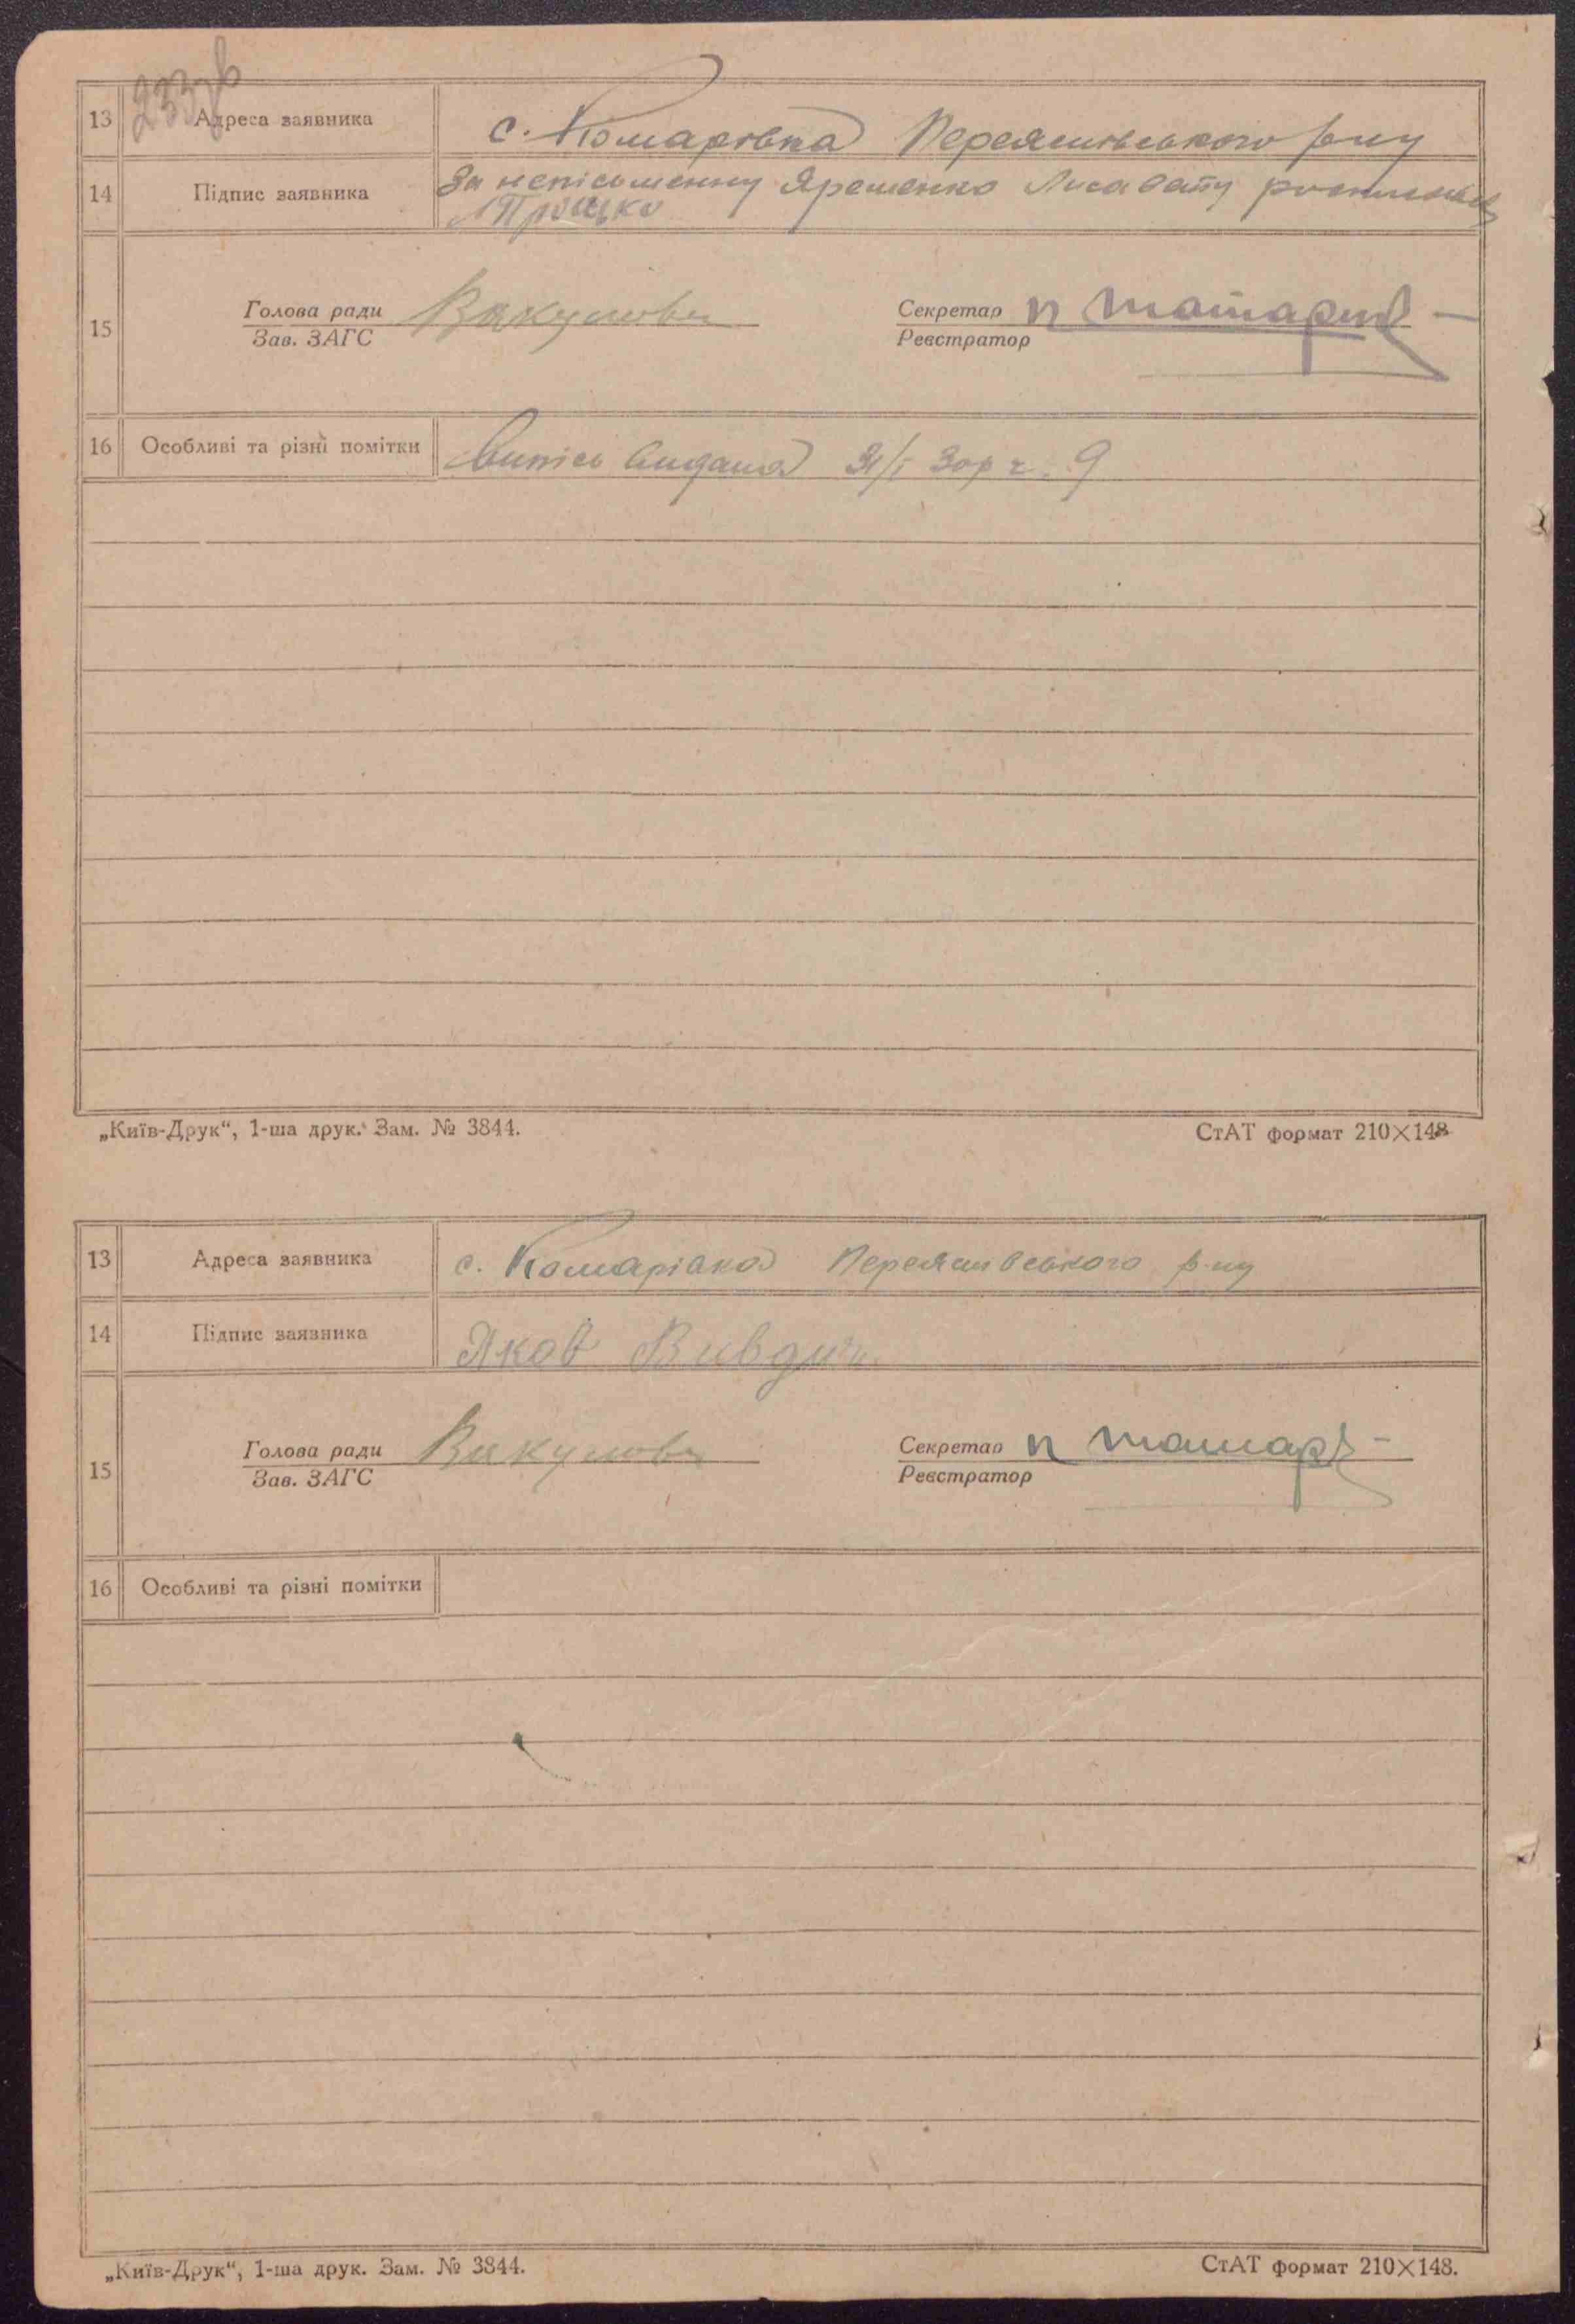 233зв
13 Адреса заявника с. Комаровка Переяславського р-ну
14 Підпис заявника За неписьменну Яременко Лисавету
Процько
15 Голова ради Вакулова Секретар П Татарин
Зав. ЗАГС Реєстратор
16 Особливі та різні помітки Випись видана 31/I 30р ч. 9
„Київ-Друк“, 1-ша друк. Зам. № 3844. СтАТ формат 210×148
13 Адреса заявника с. Комарівка Переяславського р-ну
14 Підпис заявника Яков Вивдич
15 Голова ради Вакулова Секретар П Татар
Зав. ЗАГС Реєстратор
16 Особливі та різні помітки
„Київ-Друк“, 1-ша друк. Зам. № 3844. СтАТ формат 210×148.